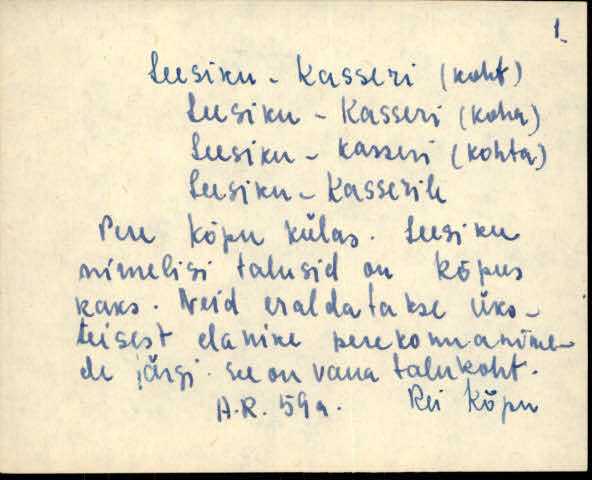 1
Leesiku - Kasseri (koht)
Leesiku - Kasseri (koha)
Leesiku - Kasseri (kohta)
Leesiku - Kasserile
Pere Kõpu külas. Leesiku
nimelisi talusid on Kõpus
kaks. Neid eraldatakse üks-
teisest elanike perekonnanime-
de järgi. See on vana talukoht.
A.R. 59a. Rei Kõpu